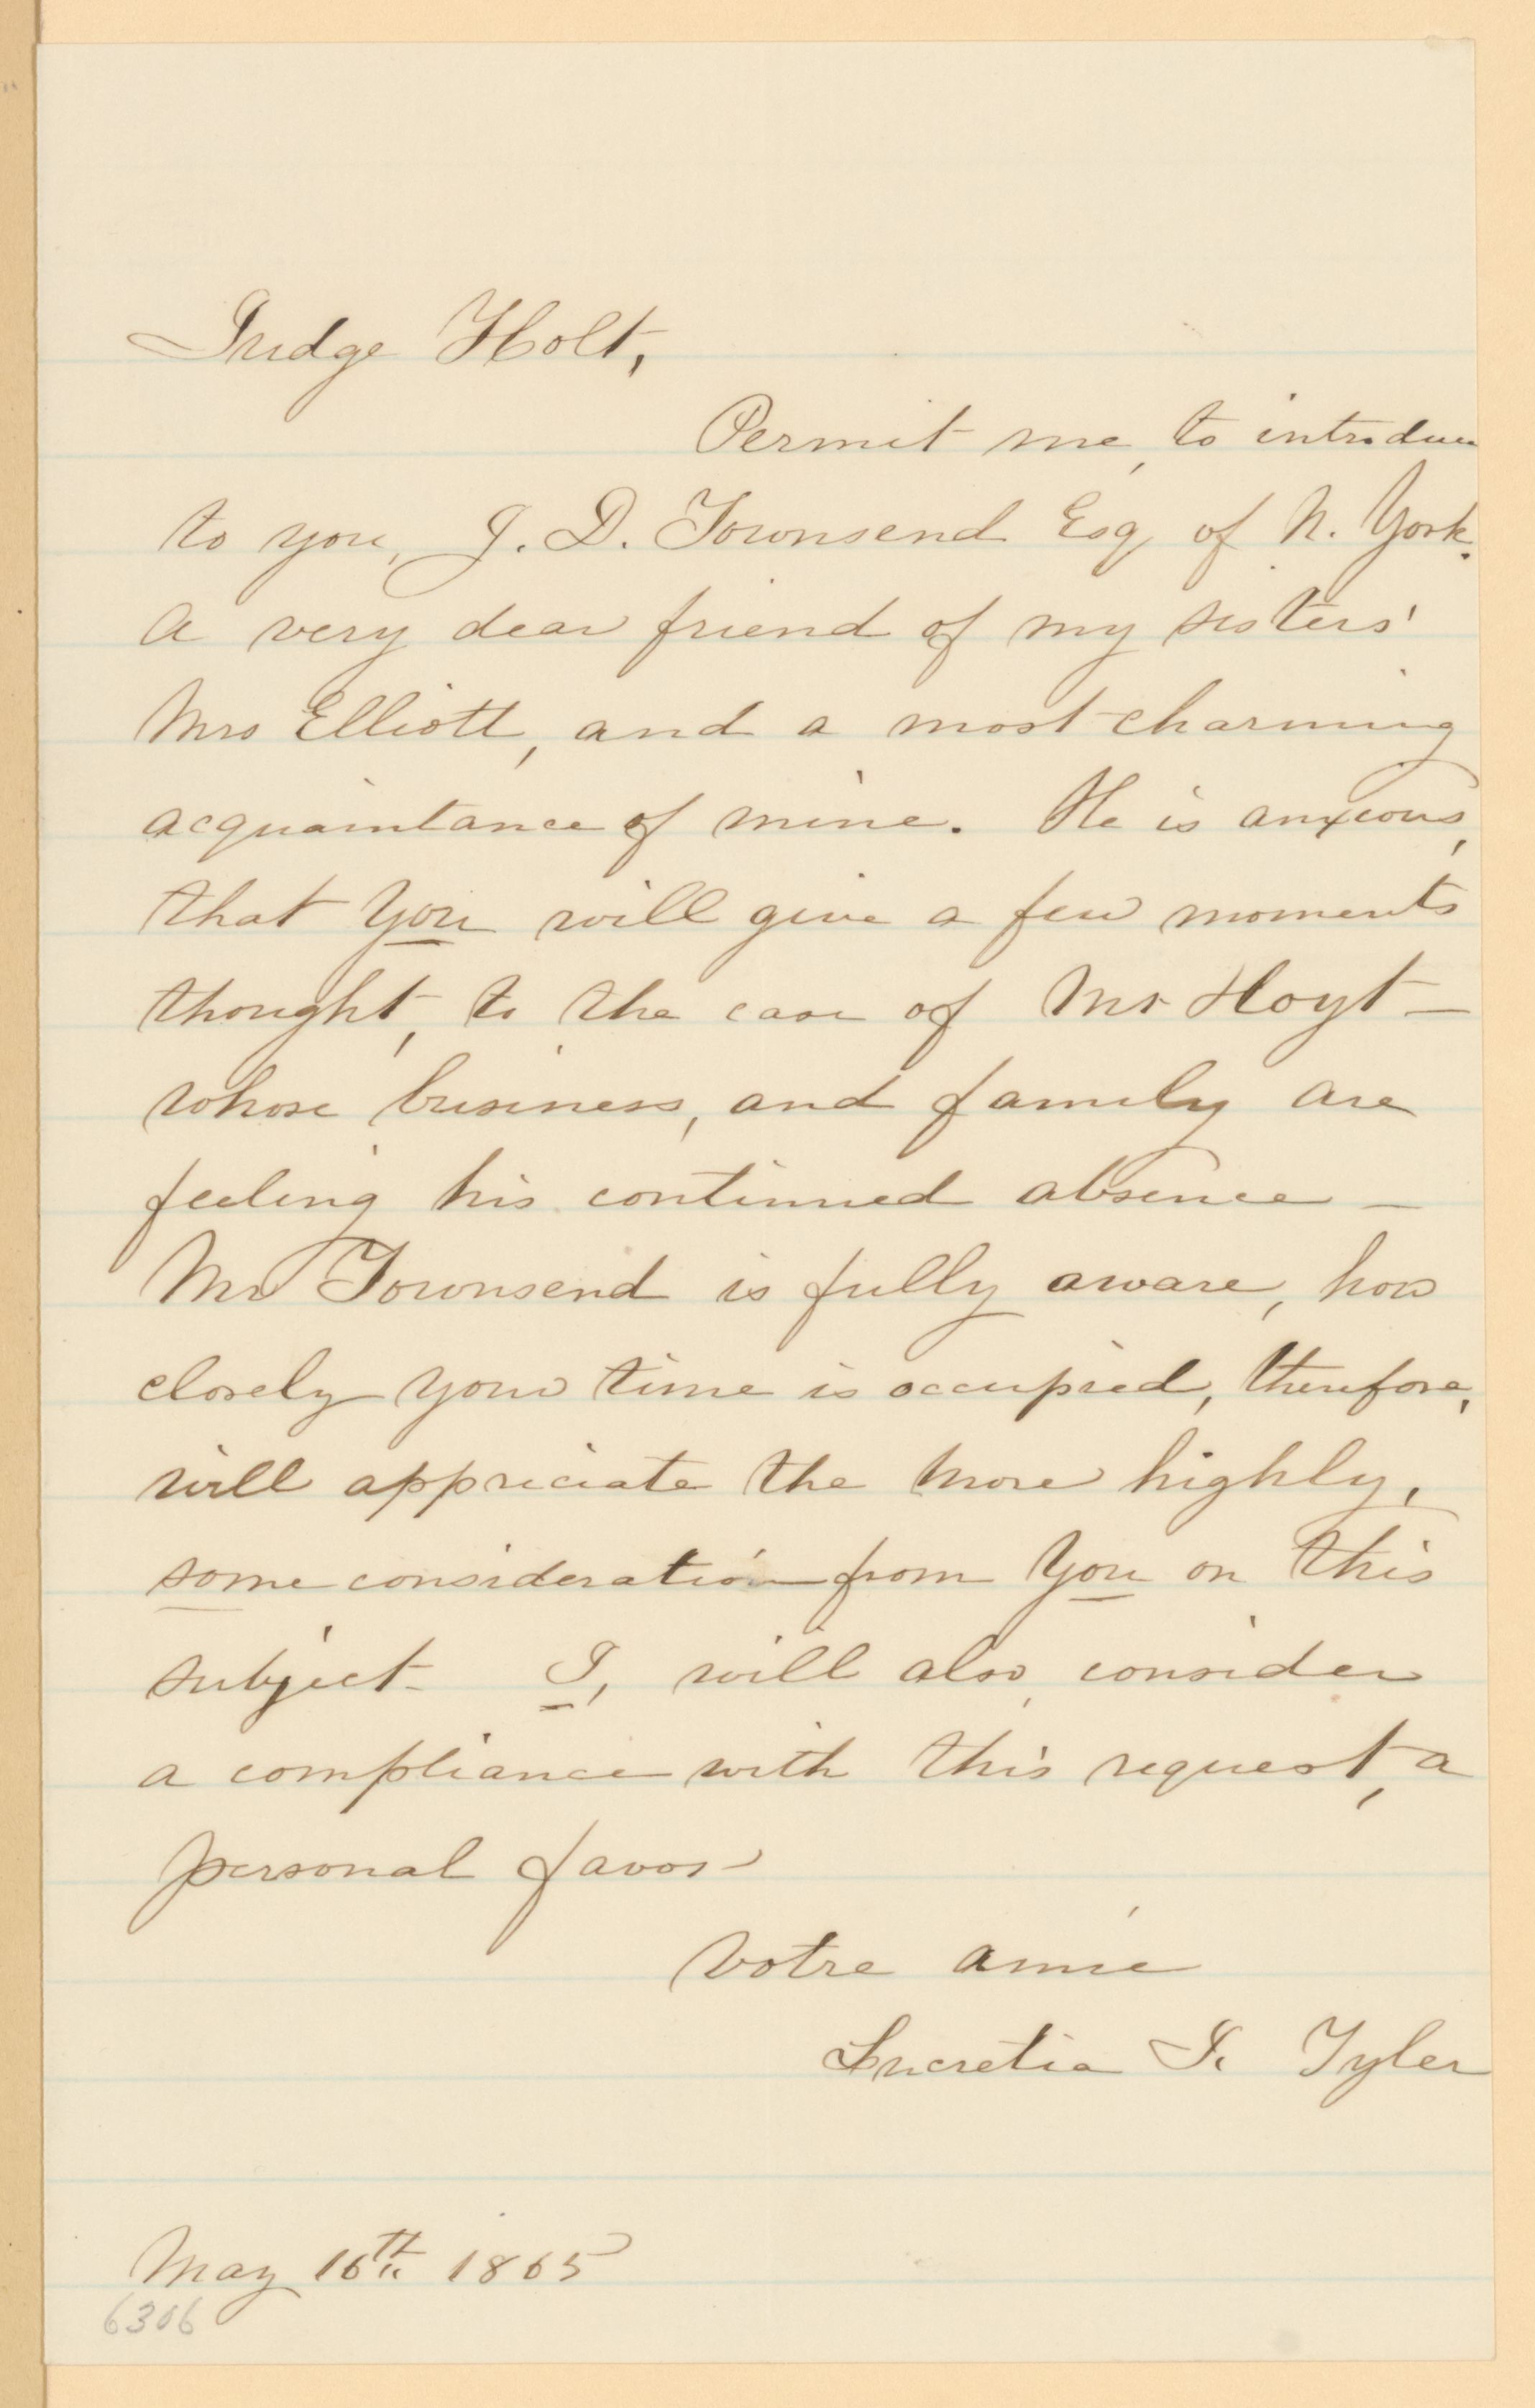 Judge Holt,
Permit me, to introduce
to you, J. D. Townsend Esq of N. York.
A very dear friend of my sisters'
Mrs Elliott, and a most charming
acquaintance of mine. He is anxious,
that you will give a few moments
thought, to the case of Mr Hoyt —
whose business, and family are
feeling his continued absence —
Mr Townsend is fully aware, how
closely your time is occupied, therefore,
will appreciate the more highly,
some consideration from you on this
subject — I, will also, consider
a compliance with this request, a
personal favor —
votre amie
Lucretia I. Tyler
May 16th 1865
6306